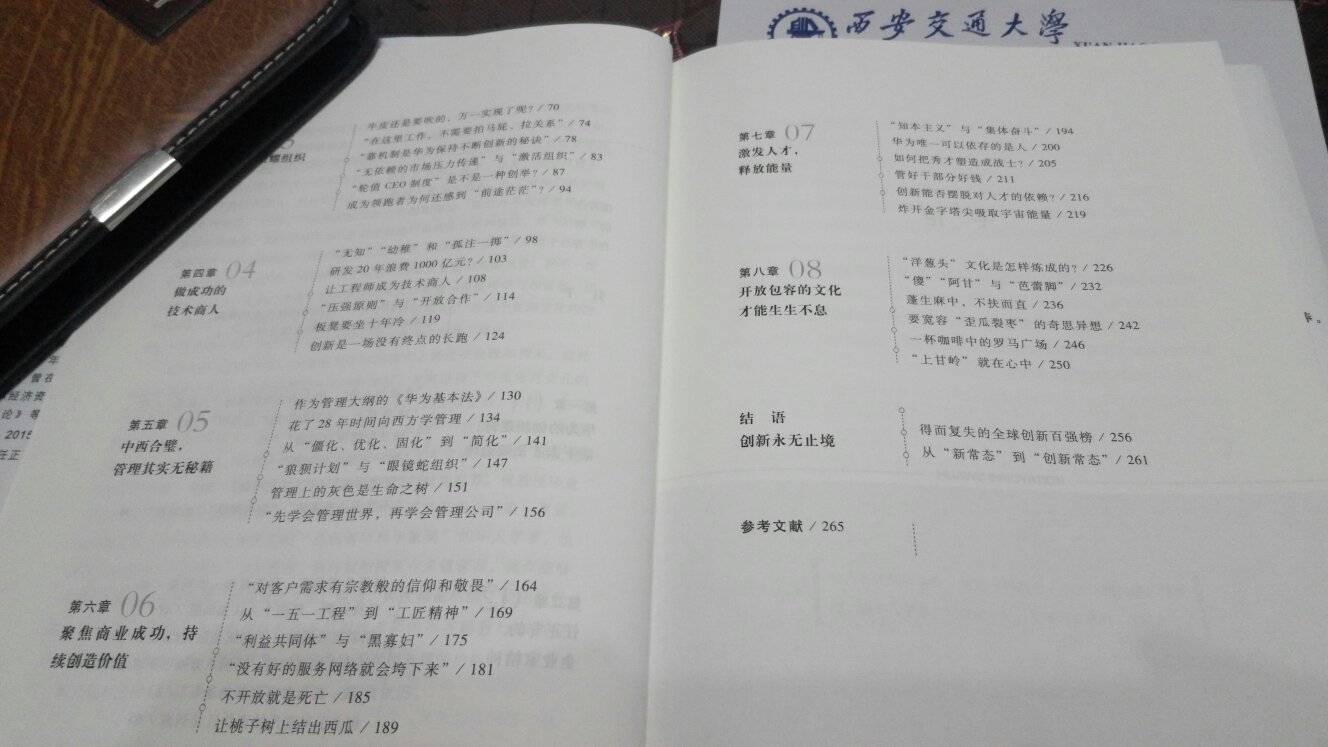 西安交通大學
牛皮还是要吹的，万一实现了呢？/ 70
“在这里工作，不需要拍马屁、拉关系” / 74
“靠机制是华为保持不断创新的秘诀” / 78
“无依赖的市场压力传递” 与 “激活组织” / 83
“轮值 CEO 制度” 是不是一种创举？/ 87
成为领跑者为何还感到 “前途茫茫”？/ 94
组织
第四章 04
做成功的
技术商人
“无知” “幼稚” 和 “孤注一掷” / 98
研发 20 年浪费 1000 亿元？/ 103
让工程师成为技术商人 / 108
“压强原则” 与 “开放合作” / 114
板凳要坐十年冷 / 119
创新是一场没有终点的长跑 / 124
第五章 05
中西合璧，
管理其实无秘籍
作为管理大纲的《华为基本法》/ 130
花了 28 年时间向西方学管理 / 134
从 “僵化、优化、固化” 到 “简化” / 141
“狼狈计划” 与 “眼镜蛇组织” / 147
管理上的灰色是生命之树 / 151
“先学会管理世界，再学会管理公司” / 156
第六章 06
聚焦商业成功，持
续创造价值
“对客户需求有宗教般的信仰和敬畏” / 164
从 “一五一工程” 到 “工匠精神” / 169
“利益共同体” 与 “黑寡妇” / 175
“没有好的服务网络就会垮下来” / 181
不开放就是死亡 / 185
让桃子树上结出西瓜 / 189
第七章 07
激发人才，
释放能量
“知本主义” 与 “集体奋斗” / 194
华为唯一可以依存的是人 / 200
如何把秀才塑造成战士？/ 205
管好干部分好钱 / 211
创新能否摆脱对人才的依赖？/ 216
炸开金字塔尖吸取宇宙能量 / 219
第八章 08
开放包容的文化
才能生生不息
“洋葱头” 文化是怎样炼成的？/ 226
“傻” “阿甘” 与 “芭蕾脚” / 232
蓬生麻中，不扶而直 / 236
要宽容 “歪瓜裂枣” 的奇思异想 / 242
一杯咖啡中的罗马广场 / 246
“上甘岭” 就在心中 / 250
结 语
创新永无止境
得而复失的全球创新百强榜 / 256
从 “新常态” 到 “创新常态” / 261
参考文献 / 265
年
曾在
经济资
论》等
2015
任正